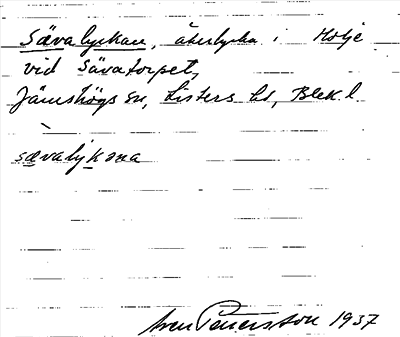 Sävalyckan, åkerlycka i Holje
vid Sävatorpet,
Jämshögs sn, Listers hd, Blek. l
sævalykana
Sven Petersson 1937